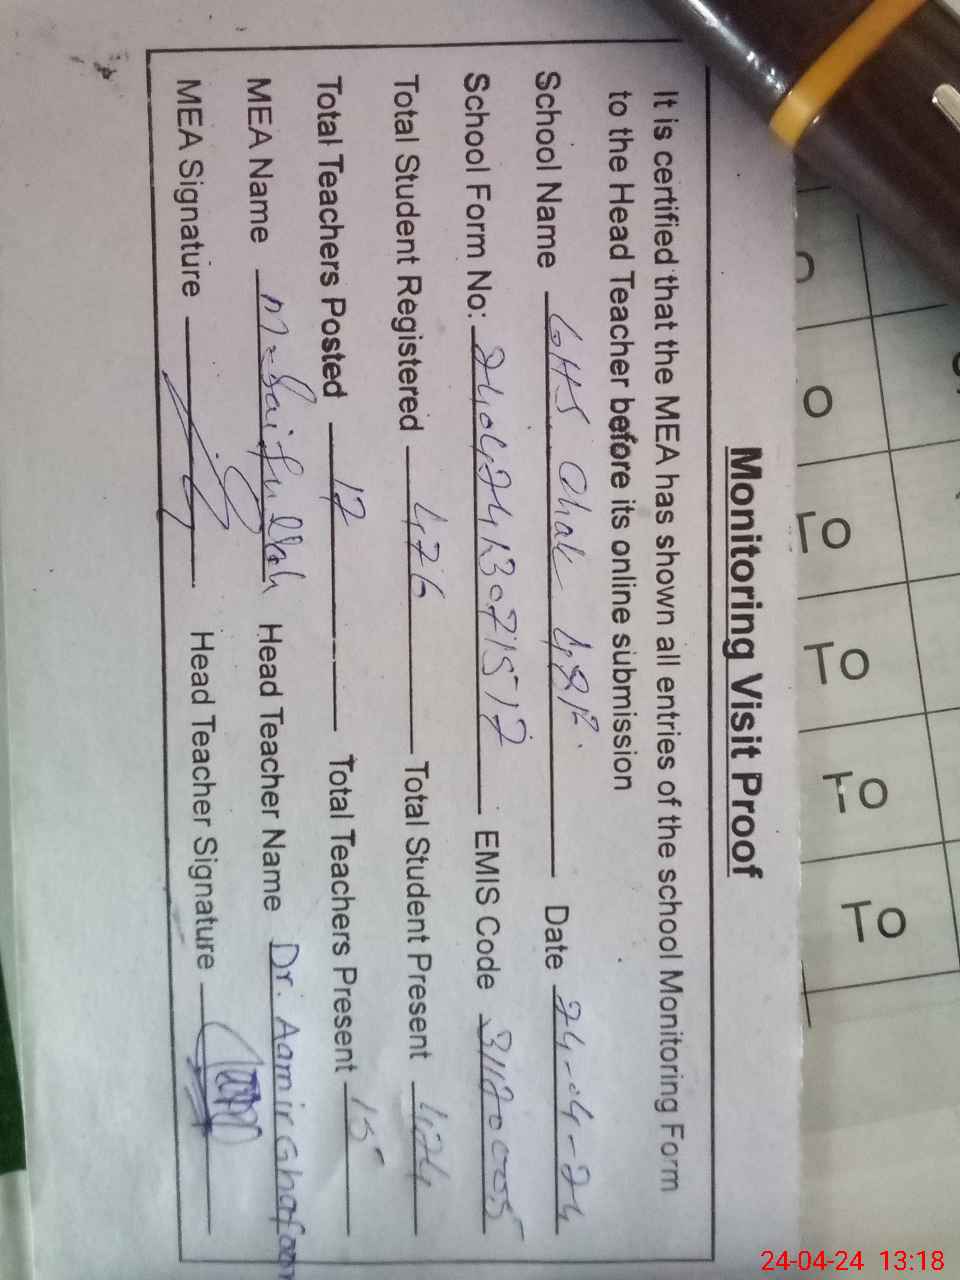 Monitoring Visit Proof
It is certified that the MEA has shown all entries of the school Monitoring Form
to the Head Teacher before its online submission
School Name GHS Chak Date 24-04-24
School Form No: EMIS Code 31120005
Total Student Registered 426 Total Student Present 424
Total Teachers Posted 17 Total Teachers Present 15
MEA Name M. Saifullah Head Teacher Name Dr. Aamir Ghafoor
MEA Signature Head Teacher Signature
24-04-24 13:18